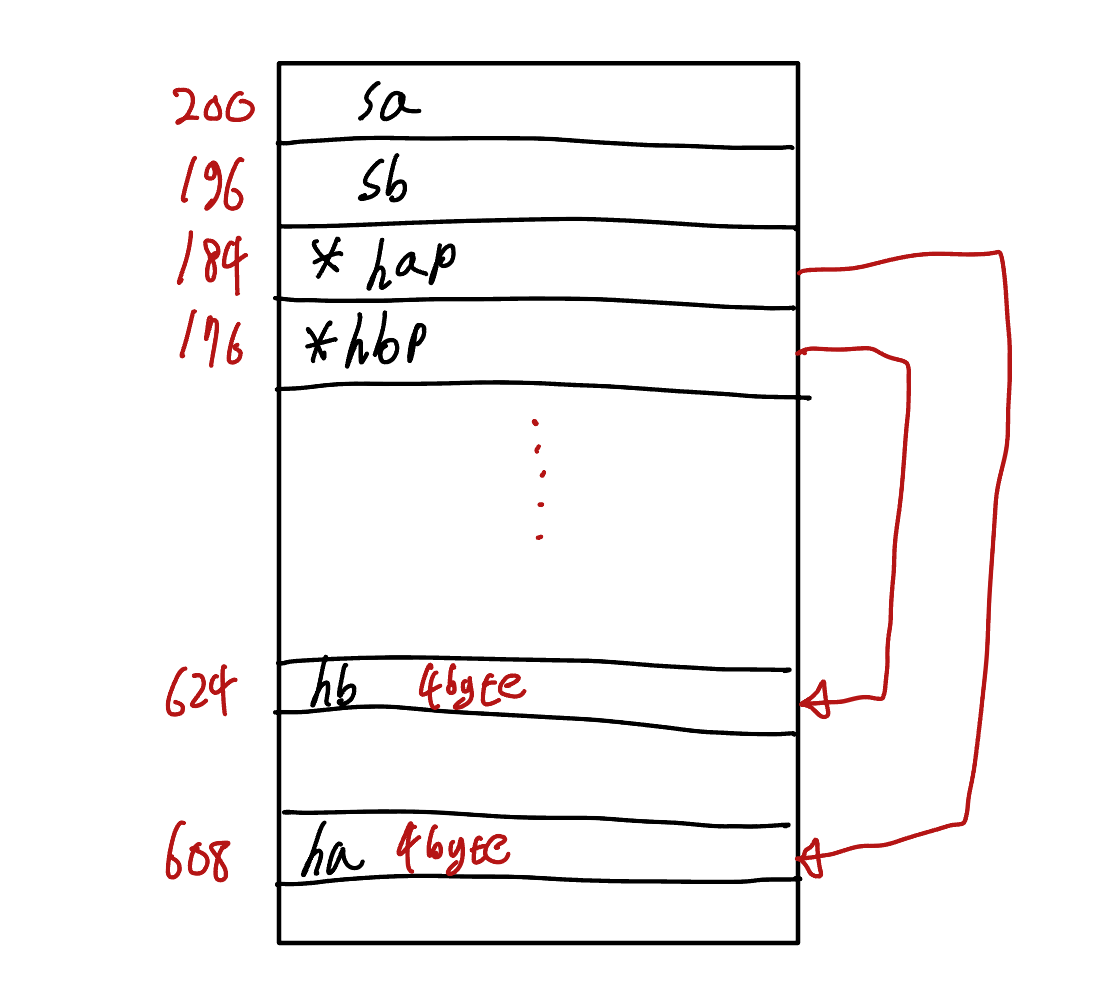 200 sa
196 sb
184 * hap
176 * hbp
624 hb 4byte
608 ha 4byte